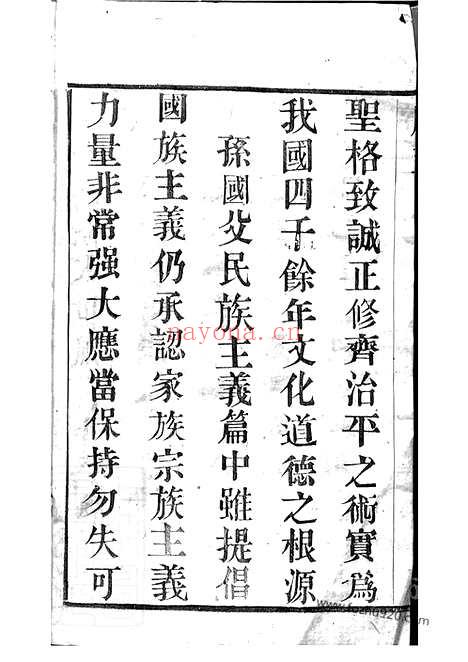 聖格致誠正修齊治平之術實為
我國四千餘年文化道德之根源
孫國父民族主義篇中雖提倡
國族主義仍承認家族宗族主義
力量非常强大應當保持勿失可
nayona.cn